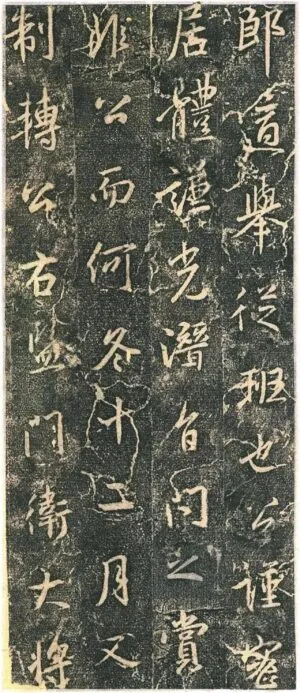 郎道舉從班也公謹密
居體謙光潛旨問之賞
公而何冬十二月又
制轉公右監門衛大將